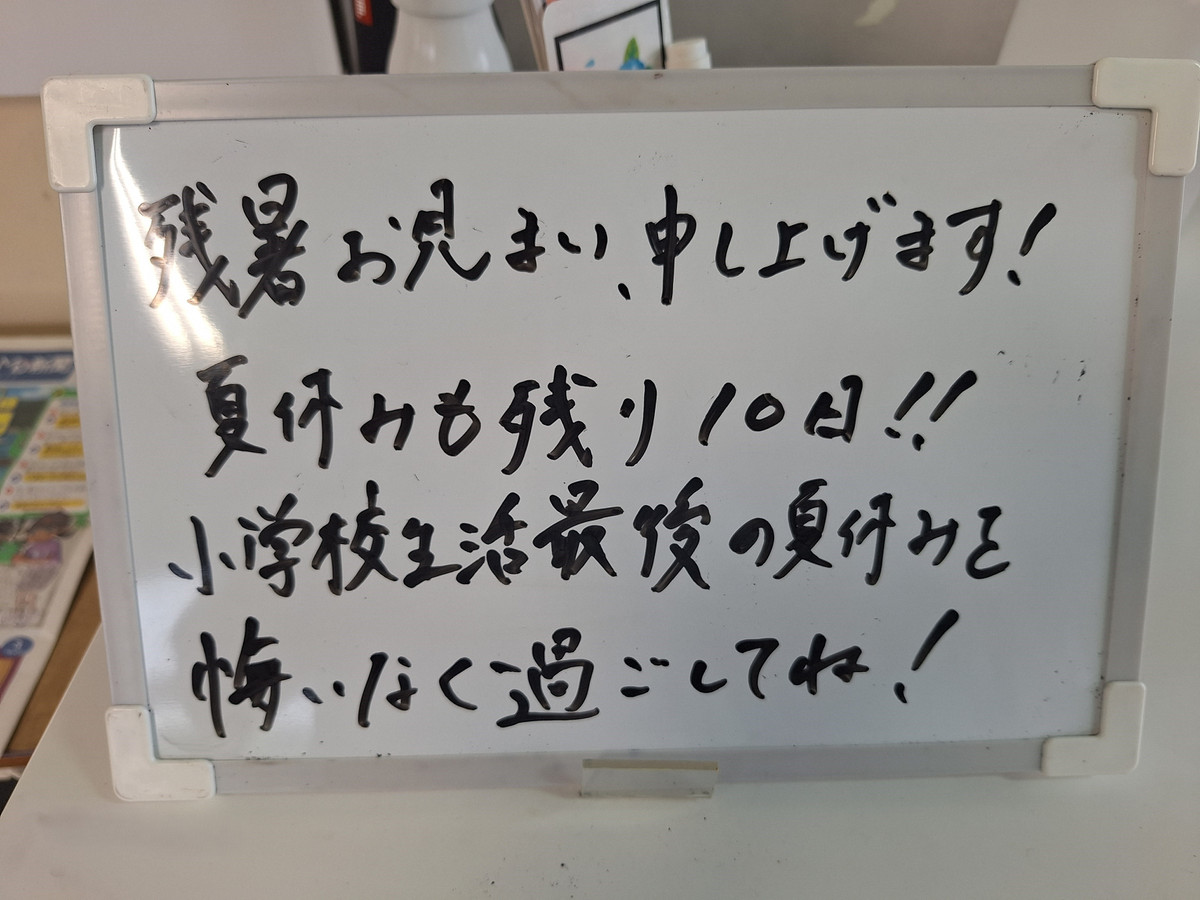 残暑お見まい、申し上げます！
夏休みも残り10日!!
小学校生活最後の夏休みを
悔いなく過ごしてね！